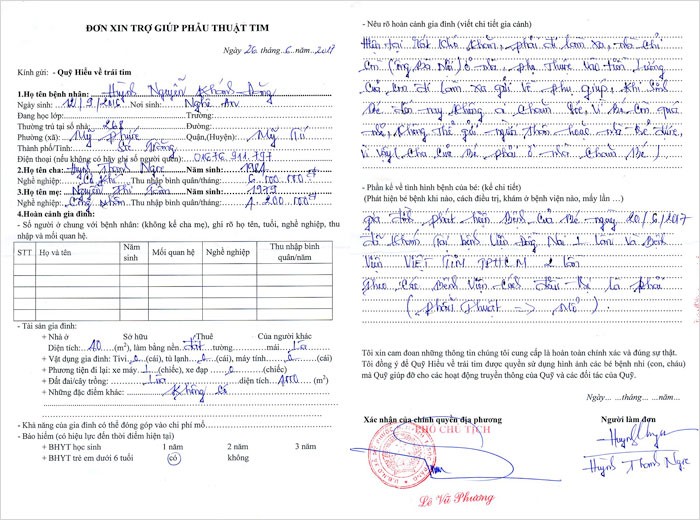 ĐƠN XIN TRỢ GIÚP PHẪU THUẬT TIM
Ngày 26 tháng 6 năm 2017
Kính gửi: - Quỹ Hiểu về trái tim
1.Họ tên bệnh nhân: Huỳnh Nguyễn Khánh Đăng
Ngày sinh: 12/9/2015 Nơi sinh: Nghệ An
Đang học lớp: Trường:
Thường trú tại số nhà: 268 Đường:
Phường (xã): Mỹ Phước Quận,(Huyện): Mỹ Tú
Thành phố/Tỉnh: Sóc Trăng
Điện thoại (nếu không có hãy ghi số người quen): 01676 911 797
2.Họ tên cha: Huỳnh Thanh Ngre Năm sinh: 1981
Nghề nghiệp: Thu nhập bình quân/tháng: 6.000.000đ
3.Họ tên mẹ: Nguyễn Thị Năm sinh: 1979
Nghề nghiệp: Công Nhân Thu nhập bình quân/tháng: 4.200.000đ
4.Hoàn cảnh gia đình:
- Số người ở chung với bệnh nhân: (không kể cha mẹ), ghi rõ họ tên, tuổi, nghề nghiệp, thu
nhập và mối quan hệ.
STT Họ và tên Năm sinh Mối quan hệ Nghề nghiệp Thu nhập bình quân/năm
- Tài sản gia đình:
+ Nhà ở Sở hữu /Thuê Của người khác
Diện tích: 40 (m²), làm bằng nền đất tường mái lá
+ Vật dụng gia đình: Tivi 0 (cái), tủ lạnh 0 (cái), máy tính 0 (cái)
+ Phương tiện đi lại: xe máy 1 (chiếc), xe đạp 0 (chiếc)
+ Đất đai/cây trồng: Lúa diện tích 1000 (m²)
+ Những đặc điểm khác: Không có
- Khả năng của gia đình có thể đóng góp vào chi phí mổ
- Bảo hiểm (có hiệu lực đến thời điểm hiện tại)
+ BHYT học sinh 1 năm 2 năm 3 năm
+ BHYT trẻ em dưới 6 tuổi có không
- Nêu rõ hoàn cảnh gia đình (viết chi tiết gia cảnh)
Hiện tại rất khó khăn, phải đi làm xa, nhà chỉ
còn (ông Bà Nội) ở nhà, phụ thuộc vào tiền lương
của con đi làm xa gửi về phụ giúp, khi sinh
Bé đến nay không ai chăm sóc, vì Bé còn quá
nhỏ, không thể gửi người thân hoặc nhà trẻ được,
vì vậy (cha của Bé phải ở nhà chăm Bé)
- Phần kể về tình hình bệnh của bé: (kể chi tiết)
(Phát hiện bé bệnh khi nào, cách điều trị, khám ở bệnh viện nào, mấy lần …)
gia đình phát hiện Bệnh của Bé ngày 20/6/2017
đã khám tại bệnh viện Đồng Nai 1 lần và Bệnh
Viện VIỆT TIM TPHCM 2 lần
Theo các Bệnh Viện Bé là phải
(Phẫu Thuật => Mổ)
Tôi xin cam đoan những thông tin chúng tôi cung cấp là hoàn toàn chính xác và đúng sự thật.
Tôi đồng ý để Quỹ Hiểu về trái tim được quyền sử dụng hình ảnh các bé bệnh nhi (con, cháu)
mà Quỹ giúp đỡ cho các hoạt động truyền thông của Quỹ và các đối tác của Quỹ.
Ngày… …tháng… …năm…
Xác nhận của chính quyền địa phương Người làm đơn
PHÓ CHỦ TỊCH
Lê Vũ Phương
Huỳnh Thanh Ngre